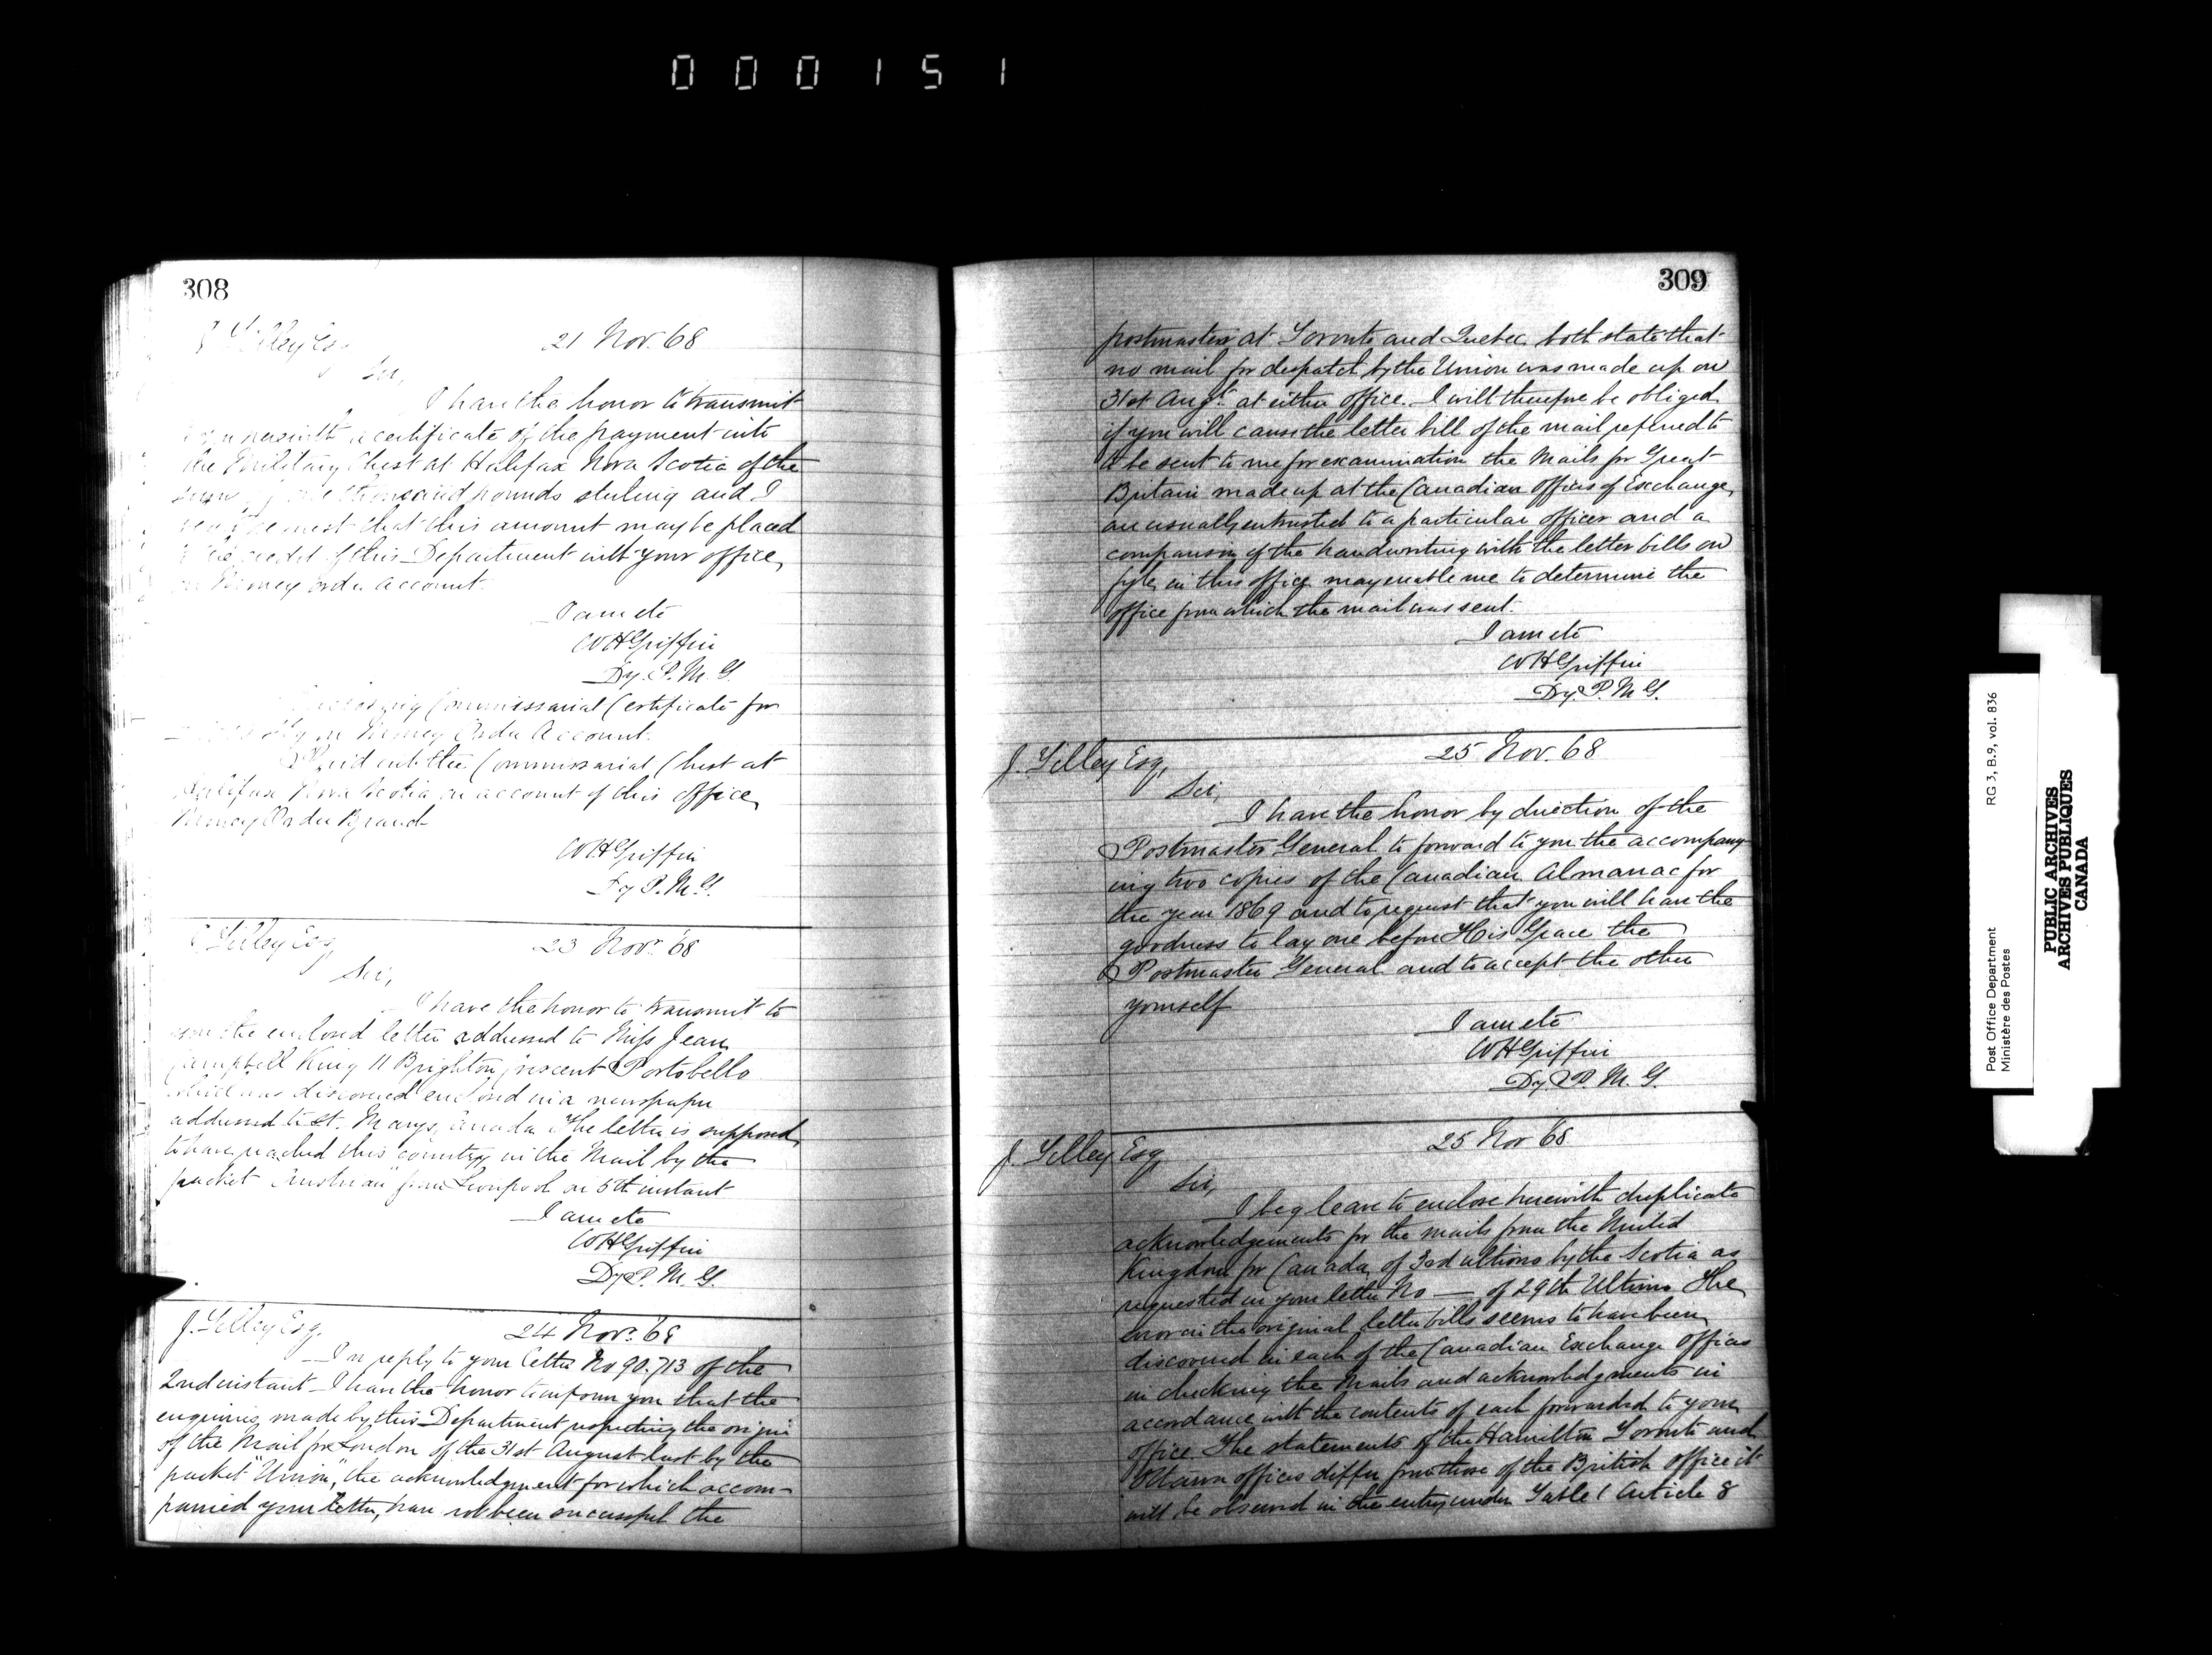 000151
308
J Tilley Esq
21 Nov. 68
Sir,
I have the honor to transmit
herewith a certificate of the payment into
the Military Chest at Halifax Nova Scotia of the
sum of one thousand pounds sterling and I
request that this amount may be placed
to the credit of this Department with your office,
on Money Order Account.
I am etc
W H Griffin
Dy. P. M. G.
Commissariat Certificate for
on Money Order Account.
Paid into the Commissariat Chest at
Halifax Nova Scotia on account of this office,
Money Order Branch
W H Griffin
Dy P. M. G.
J Tilley Esq,
23 Novr. 68
Sir,
I have the honor to transmit to
you the enclosed letter addressed to Miss Jean
Campbell King 11 Brighton Crescent Portobello
which was discovered enclosed in a newspaper
addressed to St. Marys, Canada. The letter is supposed
to have reached this country in the Mail by the
packet "Austrian" from Liverpool on 5th instant
I am etc
W H Griffin
Dy P. M. G.
J. Tilley Esq,
24 Novr. 68
In reply to your letter No 90.713 of the
2nd instant I have the honor to inform you that the
enquiries made by this Department respecting the origin
of the Mail for London of the 31st August last by the
packet "Union", the acknowledgment for which accom-
panied your letter, have not been successful the
309
postmasters at Toronto and Quebec both state that
no mail for despatch by the Union was made up on
31st Augt. at either office. I will therefore be obliged
if you will cause the letter bill of the mail referred to
to be sent to me for examination the Mails for Great
Britain made up at the Canadian Offices of Exchange,
are usually entrusted to a particular officer and a
comparison of the handwriting with the letter bills on
fyle, in this office may enable me to determine the
office from which the mail was sent.
I am etc
W H Griffin
Dy. P. M G.
J. Tilley Esq,
25 Nov. 68
Sir,
I have the honor by direction of the
Postmaster General to forward to you the accompany-
ing two copies of the Canadian Almanac for
the year 1869 and to request that you will have the
goodness to lay one before His Grace the
Postmaster General and to accept the other
yourself
I am etc.
W H Griffin
Dy. P. M. G.
J. Tilley Esq
25 Nov 68
Sir,
I beg leave to enclose herewith duplicate
acknowledgements for the mails from the United
Kingdom for Canada of 3rd ultimo by the Scotia as
requested in your letter No — of 29th Ultimo. The
error in the original letter bills seems to have been
discovered in each of the Canadian Exchange Offices
in checking the Mails and acknowledgments in
accordance with the contents of each forwarded to your
office. The statements of the Hamilton Toronto and
Ottawa offices differ from those of the British Office it
will be observed in the entry under Table 1 Article 8
Post Office Department
Ministère des Postes
RG 3, B.9, vol. 836
PUBLIC ARCHIVES
ARCHIVES PUBLIQUES
CANADA